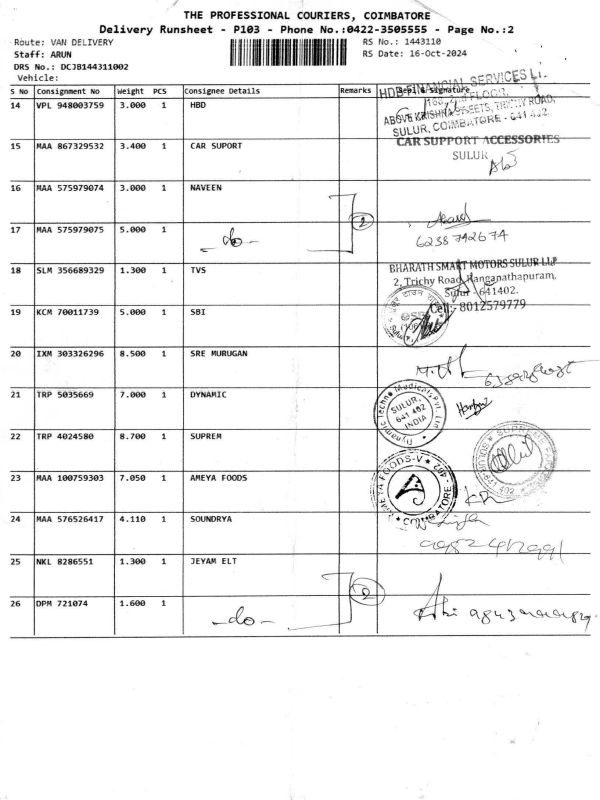 THE PROFESSIONAL COURIERS, COIMBATORE
Delivery Runsheet - P103 - Phone No.:0422-3505555 - Page No.:2
Route: VAN DELIVERY RS No.: 1443110
Staff: ARUN RS Date: 16-Oct-2024
DRS No.: DCJB144311002
Vehicle:
S No Consignment No Weight PCS Consignee Details Remarks Signature
HDB FINANCIAL SERVICES
14 VPL 948003759 3.000 1 HBD
FLOOR,
ABOVE KRISHNA SWEETS, TRICHY ROAD,
SULUR, COIMBATORE - 641 402
15 MAA 867329532 3.400 1 CAR SUPORT
CAR SUPPORT ACCESSORIES
SULUR
16 MAA 575979074 3.000 1 NAVEEN
2
17 MAA 575979075 5.000 1
-do-
6238742674
18 SLM 356689329 1.300 1 TVS
BHARATH SMART MOTORS SULUR LLP
2, Trichy Road, Ranganathapuram,
Sulur - 641402.
Cell:- 8012579779
19 KCM 70011739 5.000 1 SBI
20 IXM 303326296 8.500 1 SRE MURUGAN
21 TRP 5035669 7.000 1 DYNAMIC
Dynamic Techno Medicals Pvt. Ltd
SULUR,
641 402
INDIA
22 TRP 4024580 8.700 1 SUPREM
SULUR
641 402
23 MAA 100759303 7.050 1 AMEYA FOODS
AMEYA FOODS-V
COIMBATORE
24 MAA 576526417 4.110 1 SOUNDRYA
25 NKL 8286551 1.300 1 JEYAM ELT
2
26 DPM 721074 1.600 1
-do-